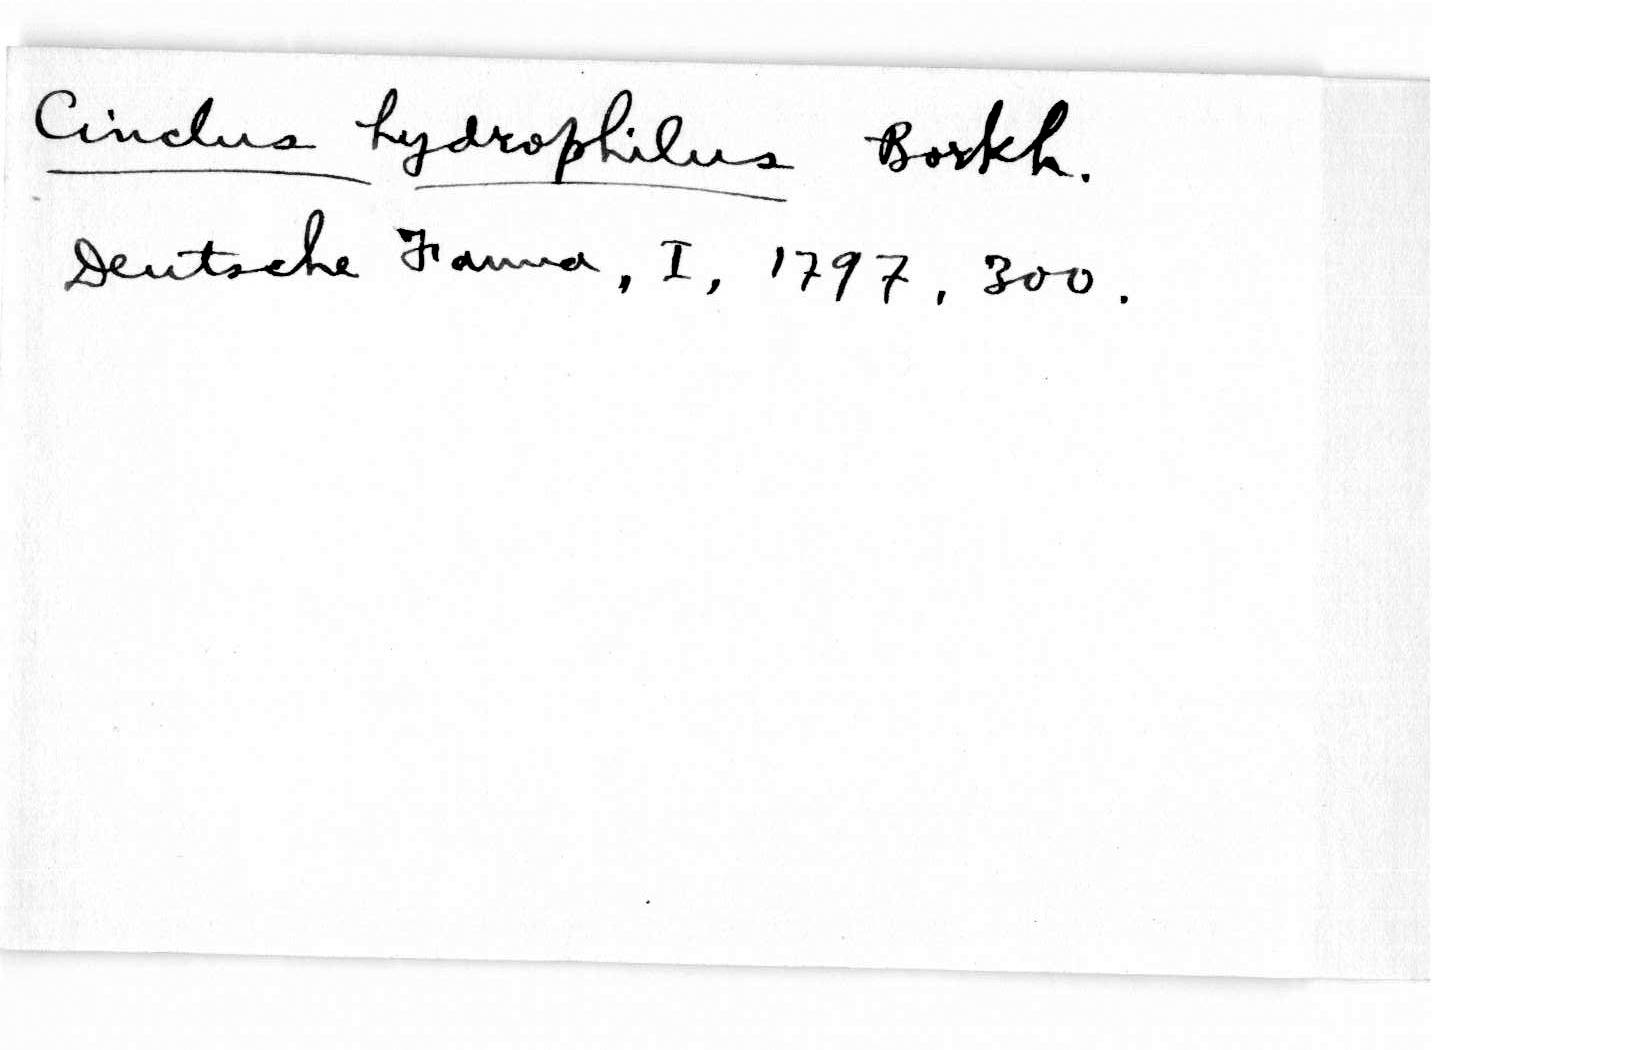 Cinclus hydrophilus Borkh.
Deutsche Fauna, I, 1797, 300.